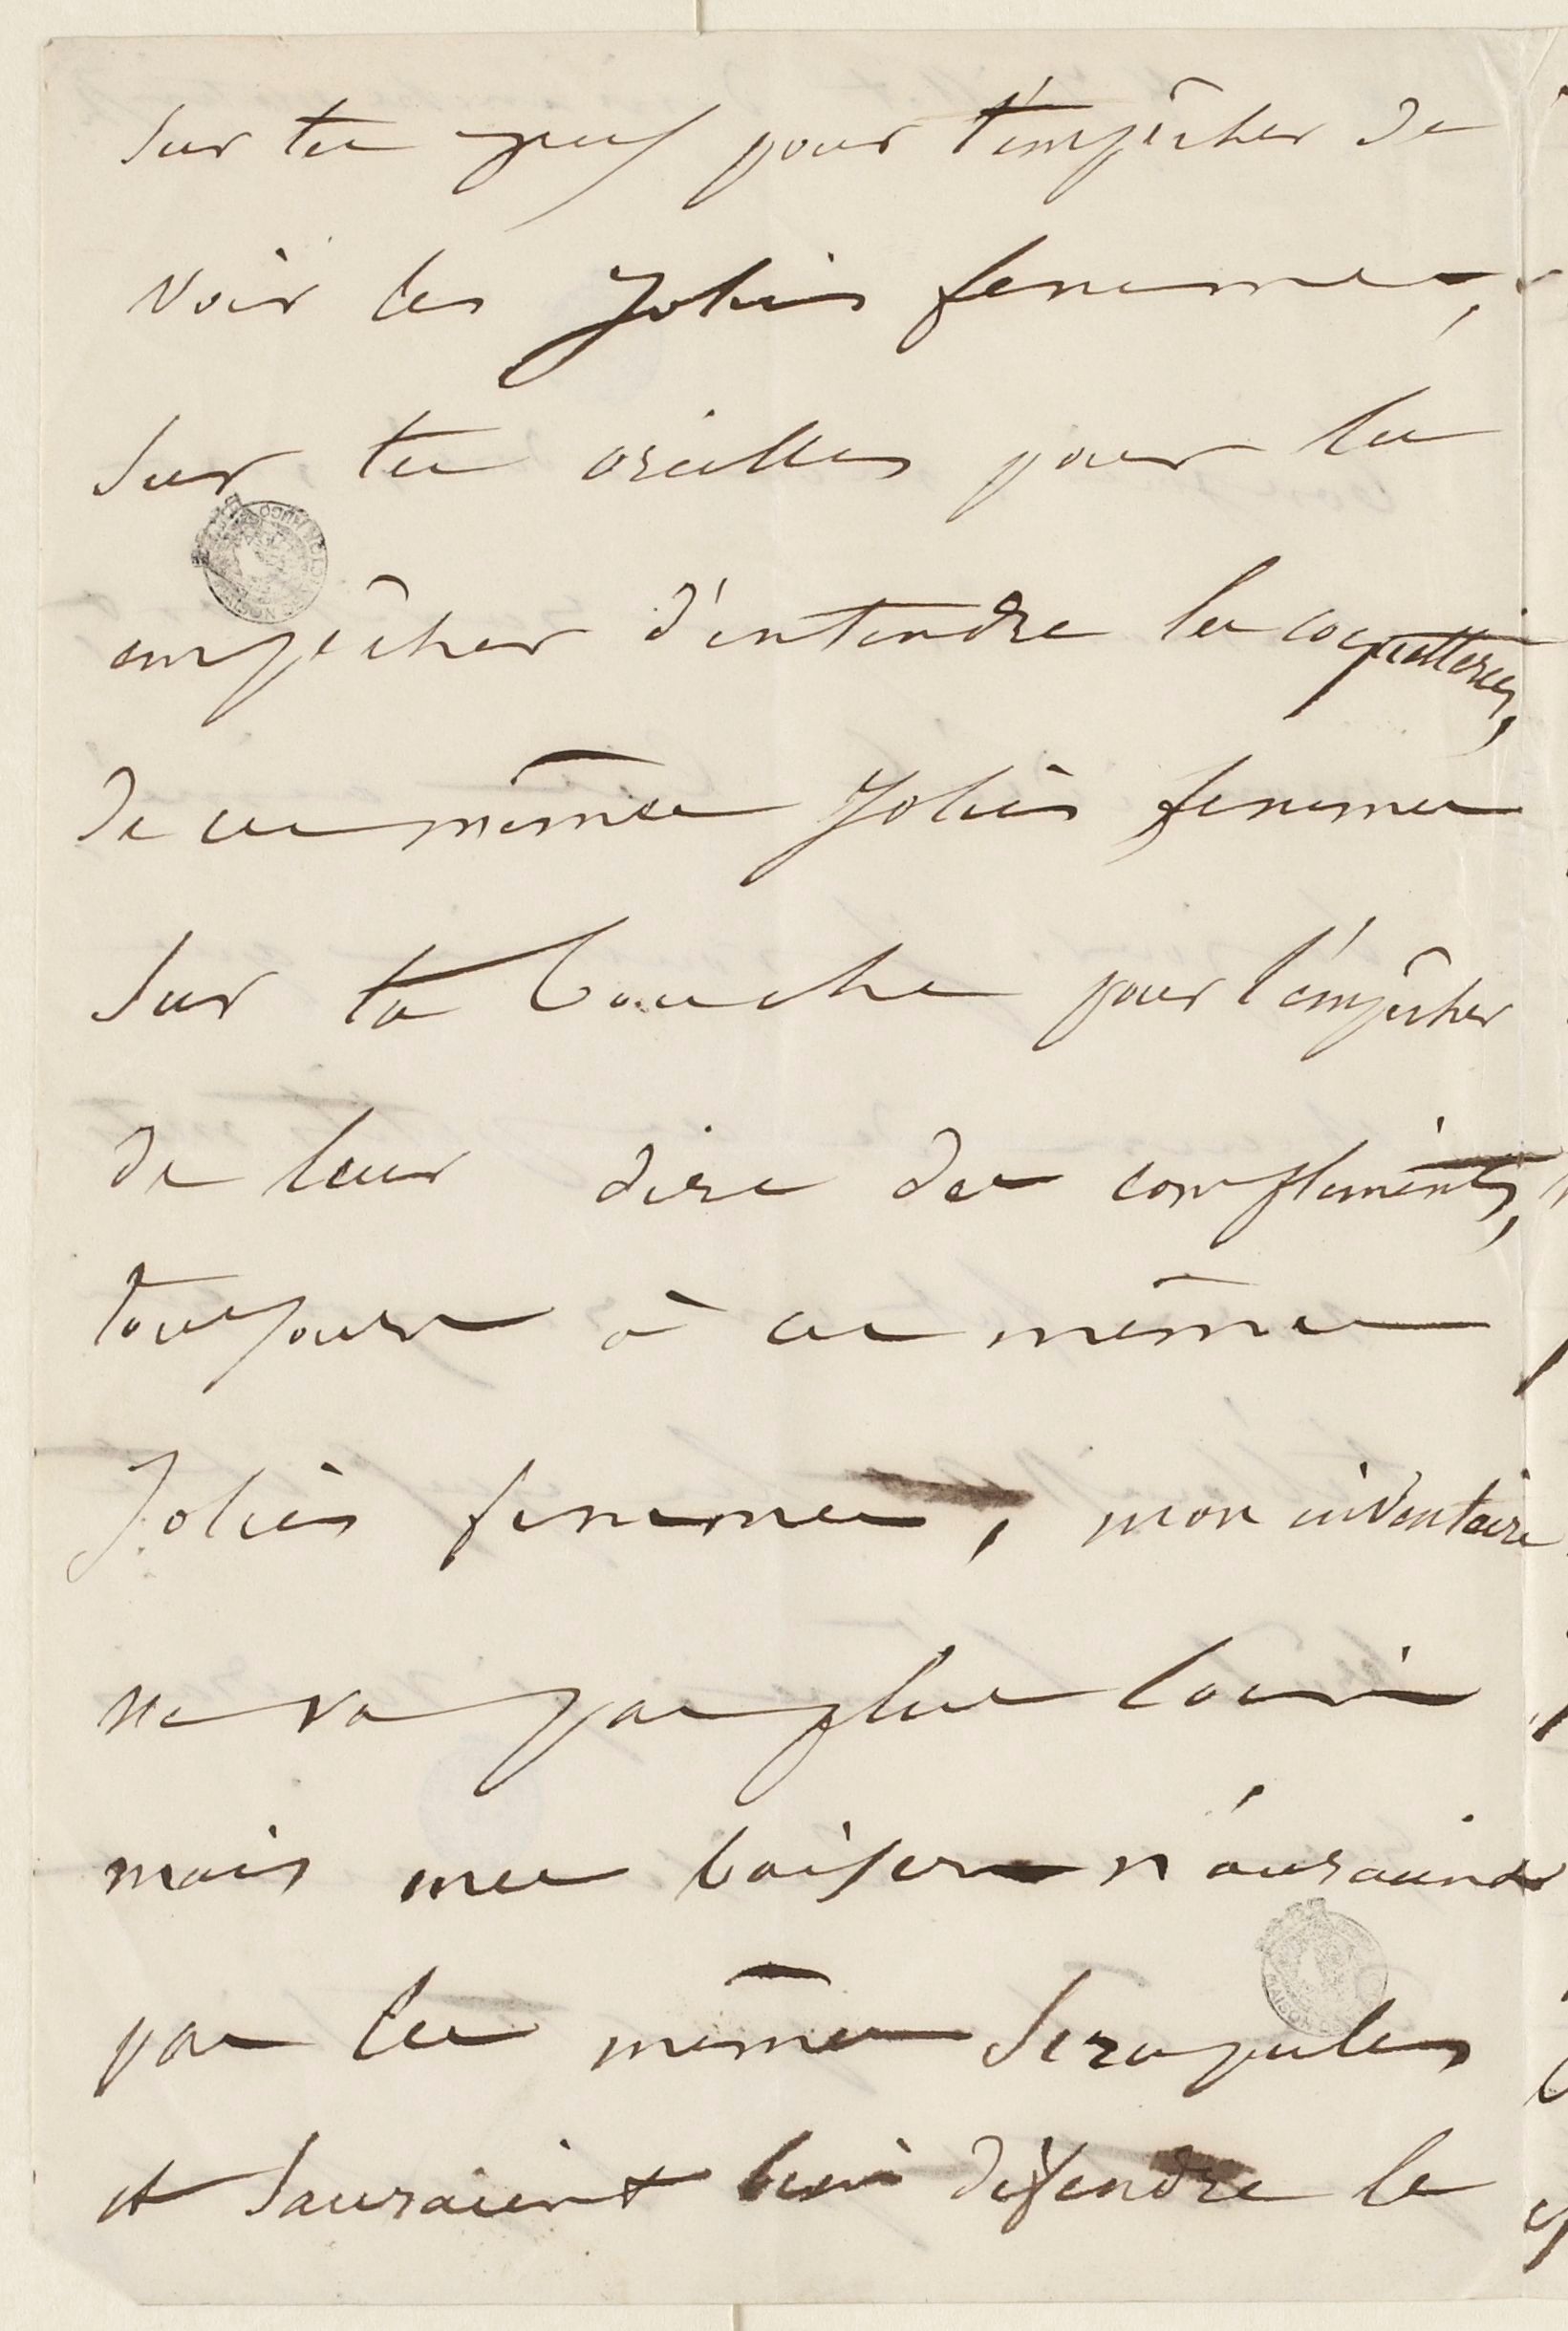 sur tes yeux pour t'empêcher de
voir les jolies femmes,
sur tes oreilles pour les
empêcher d'entendre les coquetteries,
de ces mêmes jolies femmes
sur ta bouche pour l'empêcher
de leur dire des compliments,
toujours à ces mêmes
jolies femmes, mon inventaire
ne va pas plus loin
mais mes baisers n'auraient
pas les mêmes scrupules
et sauraient bien défendre le